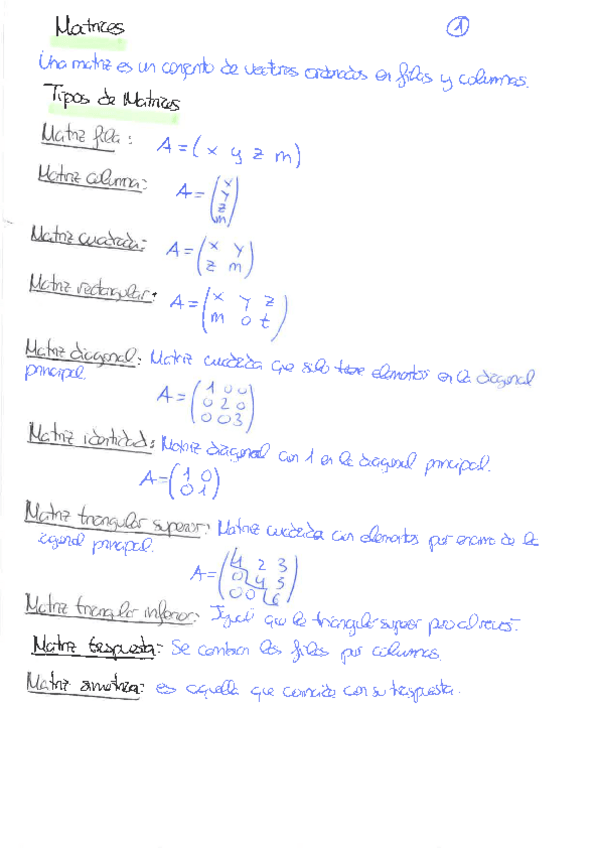 Matrices
1
Una matriz es un conjunto de vectores ordenados en filas y columnas.
Tipos de Matrices
Matriz fila: A = ( x y z m )
Matriz columna: A = ( x
y
z
m )
Matriz cuadrada: A = ( x y
z m )
Matriz rectangular: A = ( x y z
m o t )
Matriz diagonal: Matriz cuadrada que solo tiene elementos en la diagonal
principal.
A = ( 1 0 0
0 2 0
0 0 3 )
Matriz identidad: Matriz diagonal con 1 en la diagonal principal.
A = ( 1 0
0 1 )
Matriz triangular superior: Matriz cuadrada con elementos por encima de la
iagonal principal.
A = ( 1 2 3
0 4 5
0 0 6 )
Matriz triangular inferior: Igual que la triangular superior pero al revés.
Matriz traspuesta: Se cambian las filas por columnas.
Matriz simétrica: es aquella que coincide con su traspuesta.